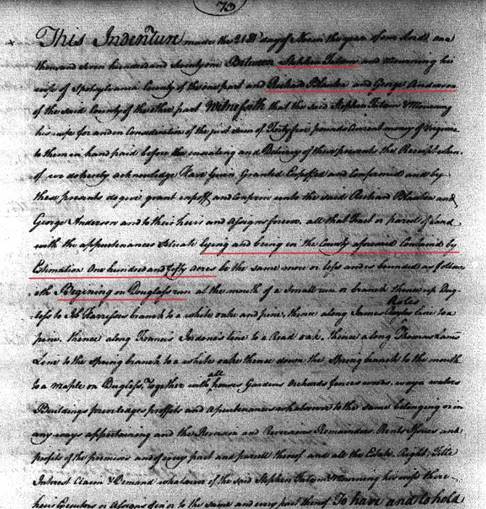 73
This Indenture made the 21st day of in the year of our Lord one
thousand seven hundred and Seventyone Between Stephen and Mourning his
wife of Spotsylvania County of the one part and Richard and George Anderson
of the said County of the other part Witnesseth that the said Stephen & Mourning
his wife for and in Consideration of the just sum of Fortyfive pounds Current money of Virginia
to them in hand paid before the ensealing and Delivery of these presents the Receipt whereof
we do hereby acknowledge Have Given Granted and confirmed and by
these presents do give grant and confirm unto the said Richard and
George Anderson and to their heirs and Assigns forever all that Tract or parcel of Land
with the appurtenances Situate lying and being in the County aforesaid Containing by
Estimation One hundred and fifty acres be the same more or less and is bounded as follow
eth Begining on Douglass run at the mouth of a Small run or branch thence up
to branch to a white oake and pine, thence along James line to a
pine, thence along Francis line to a Read oak, thence along Thomas
Line to the Spring branch to a white oake thence down the Spring branch to the mouth
all
to a maple on Douglass, Together with houses Gardens Orchards fences woods, ways waters
Buildings and Apurtenances whatsoever to the same belonging or in
any ways appertaining and the Remainders Rents and
profits of the premises and of every part and parcell thereof and all the Estate Right Title
Interest Claim & Demand whatsoever of the said Stephen & Mourning his wife their
heirs Executors or Assigns of in or to the same and every part thereof To have and to hold